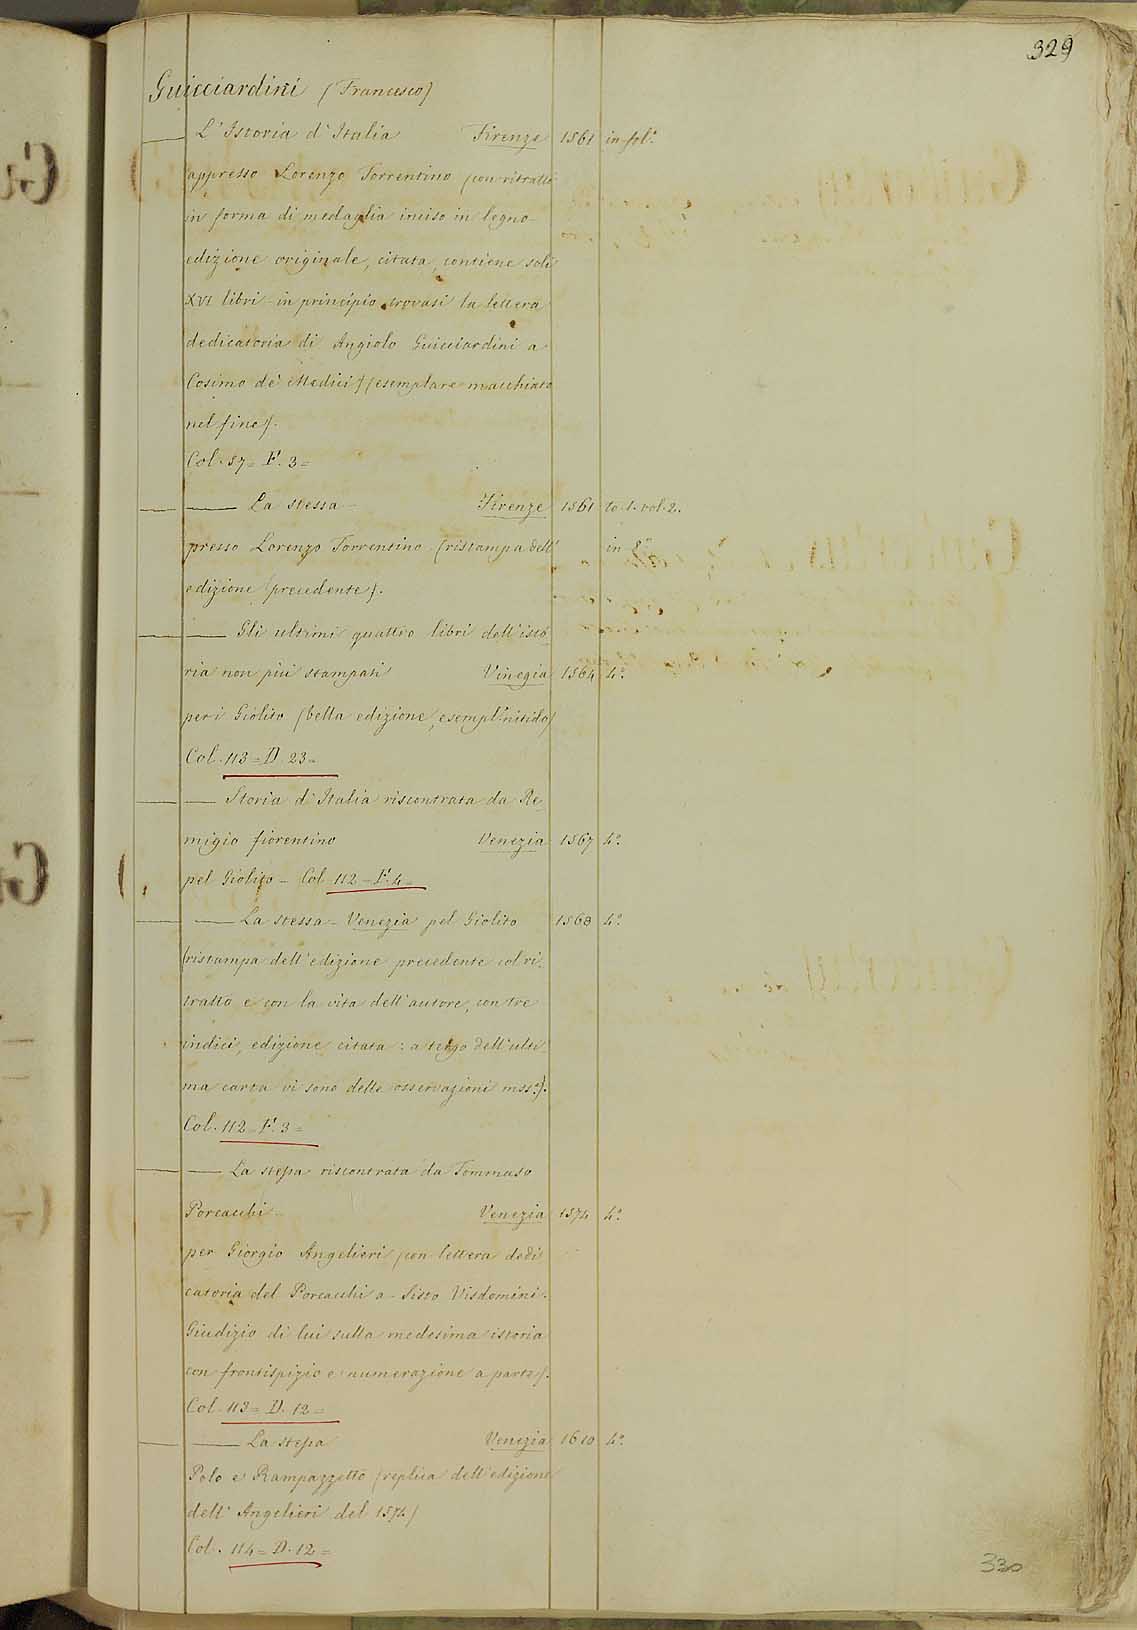 329
Guicciardini (Francesco)
L'Istoria d'Italia Firenze 1561 in-fol.°
appresso Lorenzo Torrentino (con ritratto
in forma di medaglia inciso in legno
edizione originale, citata, contiene soli
XVI libri - in principio trovasi la lettera
dedicatoria di Angiolo Guicciardini a
Cosimo de' Medici) (esemplare macchiato
nel fine).
Col. 57 = F. 3 =
La stessa - Firenze 1561 to. 1. vol. 2.
presso Lorenzo Torrentino (ristampa dell' in 8°
edizione precedente).
Gli ultimi quattro libri dell'isto-
ria non più stampati Vinegia 1564 4°
per i Giolito (bella edizione, esempl. nitido)
Col. 113 = D. 23 =
Storia d'Italia riscontrata da Re-
migio fiorentino Venezia 1567 4°
pel Giolito - Col 112 - F. 4 =
La stessa - Venezia pel Giolito 1568 4°
(ristampa dell'edizione precedente col ri-
tratto e con la vita dell'autore, con tre
indici, edizione citata: a tergo dell'ulti-
ma carta vi sono delle osservazioni mss.).
Col. 112 = F. 3 =
La stessa riscontrata da Tommaso
Porcacchi - Venezia 1574 4°
per Giorgio Angelieri (con lettera dedi
catoria del Porcacchi a Sisto Visdomini.
Giudizio di lui sulla medesima istoria
con frontispizio e numerazione a parte).
Col. 113 = D. 12 =
La stessa Venezia 1610 4°
Polo e Rampazzetto (replica dell'edizione
dell'Angelieri del 1574)
Col. 114 = D. 12 =
330